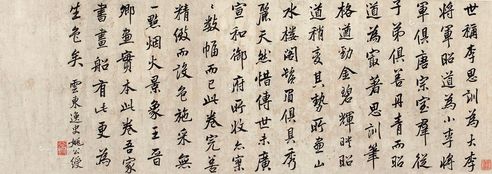 世稱李思訓為大李
將軍昭道為小李將
軍俱唐宗室群從
子弟俱善丹青而昭
道為冣著思訓筆
格遒勁金碧輝映昭
道稍變其勢所畫山
水樓閣鬚眉俱具秀
麗天然惜傳世未廣
宣和御府所收亦寥
〻數幅而已此卷完善
精緻而設色施采無
一點烟火景象王晉
卿畫實本此卷吾家
書畫船有此更為
生色矣 雲東逸史姚公綬